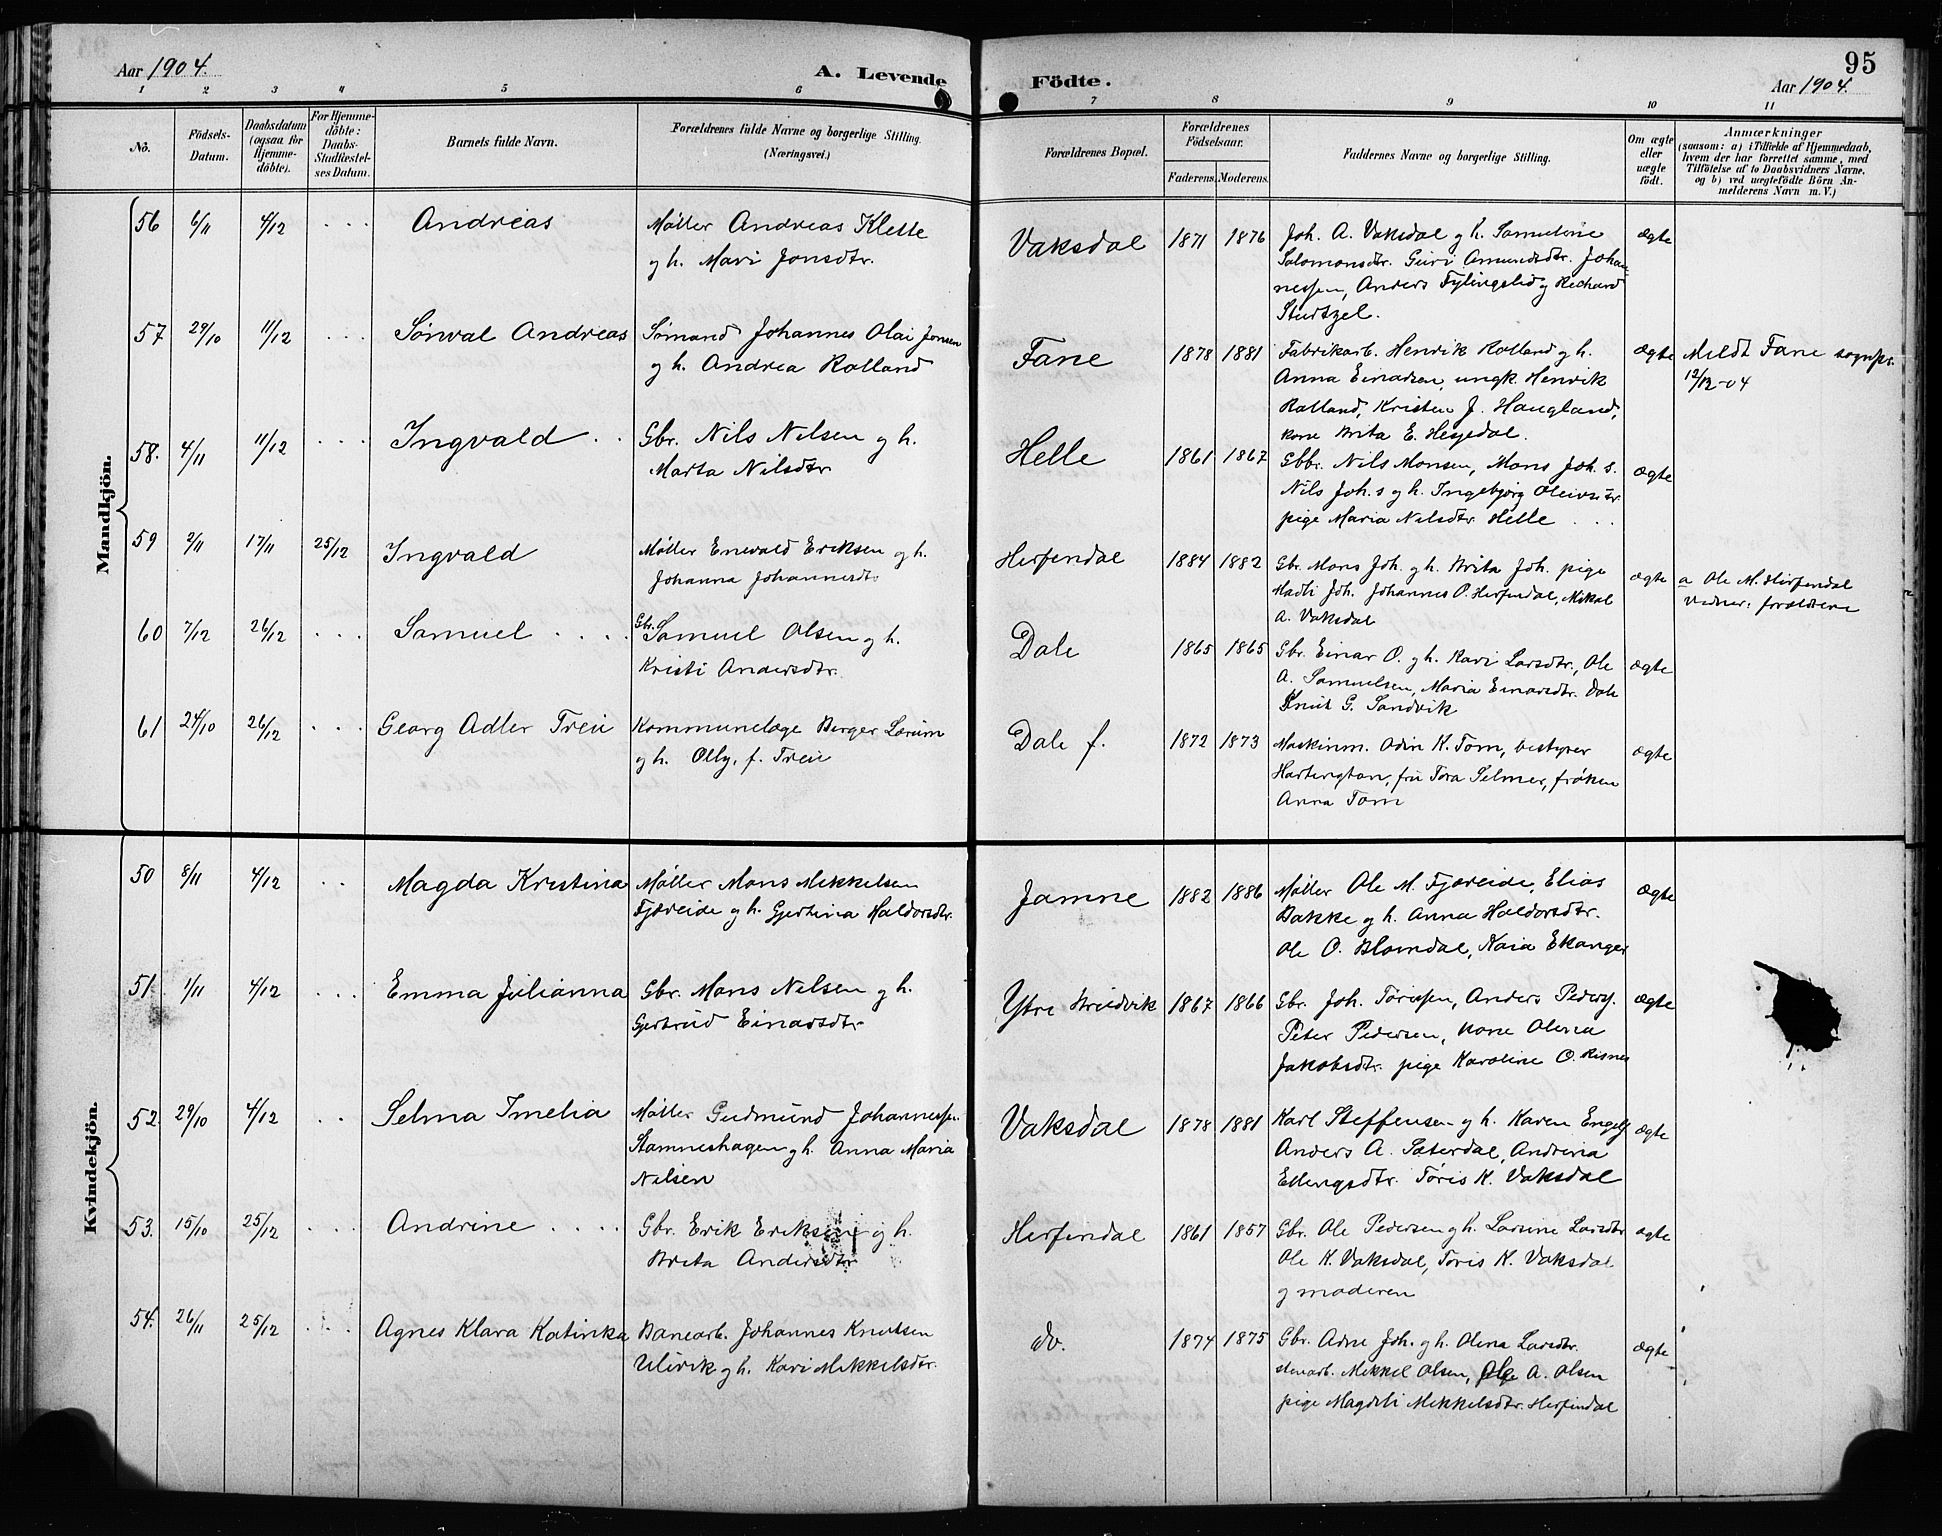 Aar 1904.
A. Levende
Födte.
95
Aar 1904.
1 2 3 4 5 6 7 8 9 10 11
No.
Födsels-
Datum.
Daabsdatum
(ogsaa for
Hjemme-
döbte).
For Hjemme-
döbte:
Daabs-
Stadfæstel-
ses Datum.
Barnets fulde Navn.
Forældrenes fulde Navne og borgerlige Stilling.
(Næringsvei.)
Forældrenes Bopæl.
Forældrenes
Födselsaar.
Faderens. Moderens.
Faddernes Navne og borgerlige Stilling.
Om ægte
eller
uægte
født.
Anmærkninger
(saasom: a) i Tilfælde af Hjemmedaab,
hvem der har forrettet samme, med
Tilföielse af to Daabsvidners Navne,
og b) ved uægtefödte Börn An-
melderens Navn m. V.)
Mandkjön.
56 6/11 4/12 Andreas
Møller Andreas Klette
og h. Mari Jonsdtr.
Vaksdal 1871 1876
Joh. A. Vaksdal og h. Samueline
Salomonsdtr. Guri Amundsdtr. Johan-
nessen, Anders Fylingslid og Richard
Sturtzel.
ægte
57 29/10 11/12 Sørval Andreas
Sømand Johannes Olai Jonsen
og h. Andrea Rolland
Fane 1878 1881
Fabrikarb. Henrik Rolland og h.
Anna Einarsen, ungk. Henrik
Rolland, Kristen J. Haugland,
kone Brita E. Hesjedal.
ægte
Meldt Fane sognpr.
12/12-04
58. 4/11 11/12 Ingvald
Gbr. Nils Nilsen og h.
Marta Nilsdtr
Helle 1861 1867
Gbb. Nils Monsen, Mons Joh. s.
Nils Joh. s og h. Ingebjørg Oleivsdtr.
pige Maria Nilsdtr. Helle
ægte
59 2/11 17/11 25/12 Ingvald
Møller Enevald Eriksen og h.
Johanna Johannesdtr
Herfindal 1884 1882
Gbr. Mons Joh. og h. Brita Joh. pige
Madli Joh. Johannes O. Herfindal, Mikal
A. Vaksdal
ægte
a Ole M. Herfindal
Vidner: forældrene
60 7/12 26/12 Samuel
Gbr. Samuel Olsen og h.
Kristi Andersdtr.
Dale 1865 1865
Gbr. Einar O. og h. Kari Larsdtr., Ole
A. Samuelsen, Maria Einarsdtr. Dale
Knut G. Sandvik
ægte
61 24/10 26/12 Georg Adler Treu
Kommunelæge Berger Lærum
og h. Olly, f. Treu
Dale f. 1872 1873
Maskinm. Odin K. Tom, bestyrer
Hartington, fru Tora Selmer, frøken
Anna Tom
ægte
Kvindekjön.
50 8/11 4/12 Magda Kristina
Møller Mons Mikkelsen
Fjæreide og h. Gjertina Haldorsdtr.
Jamne 1882 1886
Møller Ole M. Fjæreide, Elias
Bakke og h. Anna Haldorsdtr.
Ole O. Blomdal, Kaia Ekanger
ægte
51. 1/11 4/12 Emma Julianna
Gbr. Mons Nilsen og h.
Gjertrud Einarsdtr
Ytre 1867 1866
Gbr. Joh. Torissen, Anders Peders.
Peter Pedersen, kone Olena
Jakobsdtr. pige Karoline O. Risnes
ægte
52. 29/10 4/12 Selma Imelia
Møller Gudmund Johannessen
Stamneshagen og h. Anna Maria
Nilsen
Vaksdal 1878 1881
Karl Steffensen og h. Karen
Anders A. Sæterdal, Andrina
Ellingsdtr. Tøris K. Vaksdal
ægte
53. 15/10 25/12 Andrine
Gbr. Erik Eriksen og h.
Brita Andersdtr
Herfindal 1861 1857
Gbr. Ole Pedersen og h. Larsine Larsdtr
Ole K. Vaksdal, Tøris K. Vaksdal
og moderen
ægte
54. 26/11 25/12 Agnes Klara Katinka
Banearb. Johannes Knutsen
Ulivik og h. Kari Mikkelsdtr.
do. 1874 1875
Gbr. Arne Joh. og h. Olena Larsdtr.
stenarb. Mikkel Olsen, A. Olsen
pige Magdeli Mikkelsdtr. Herfindal
ægte